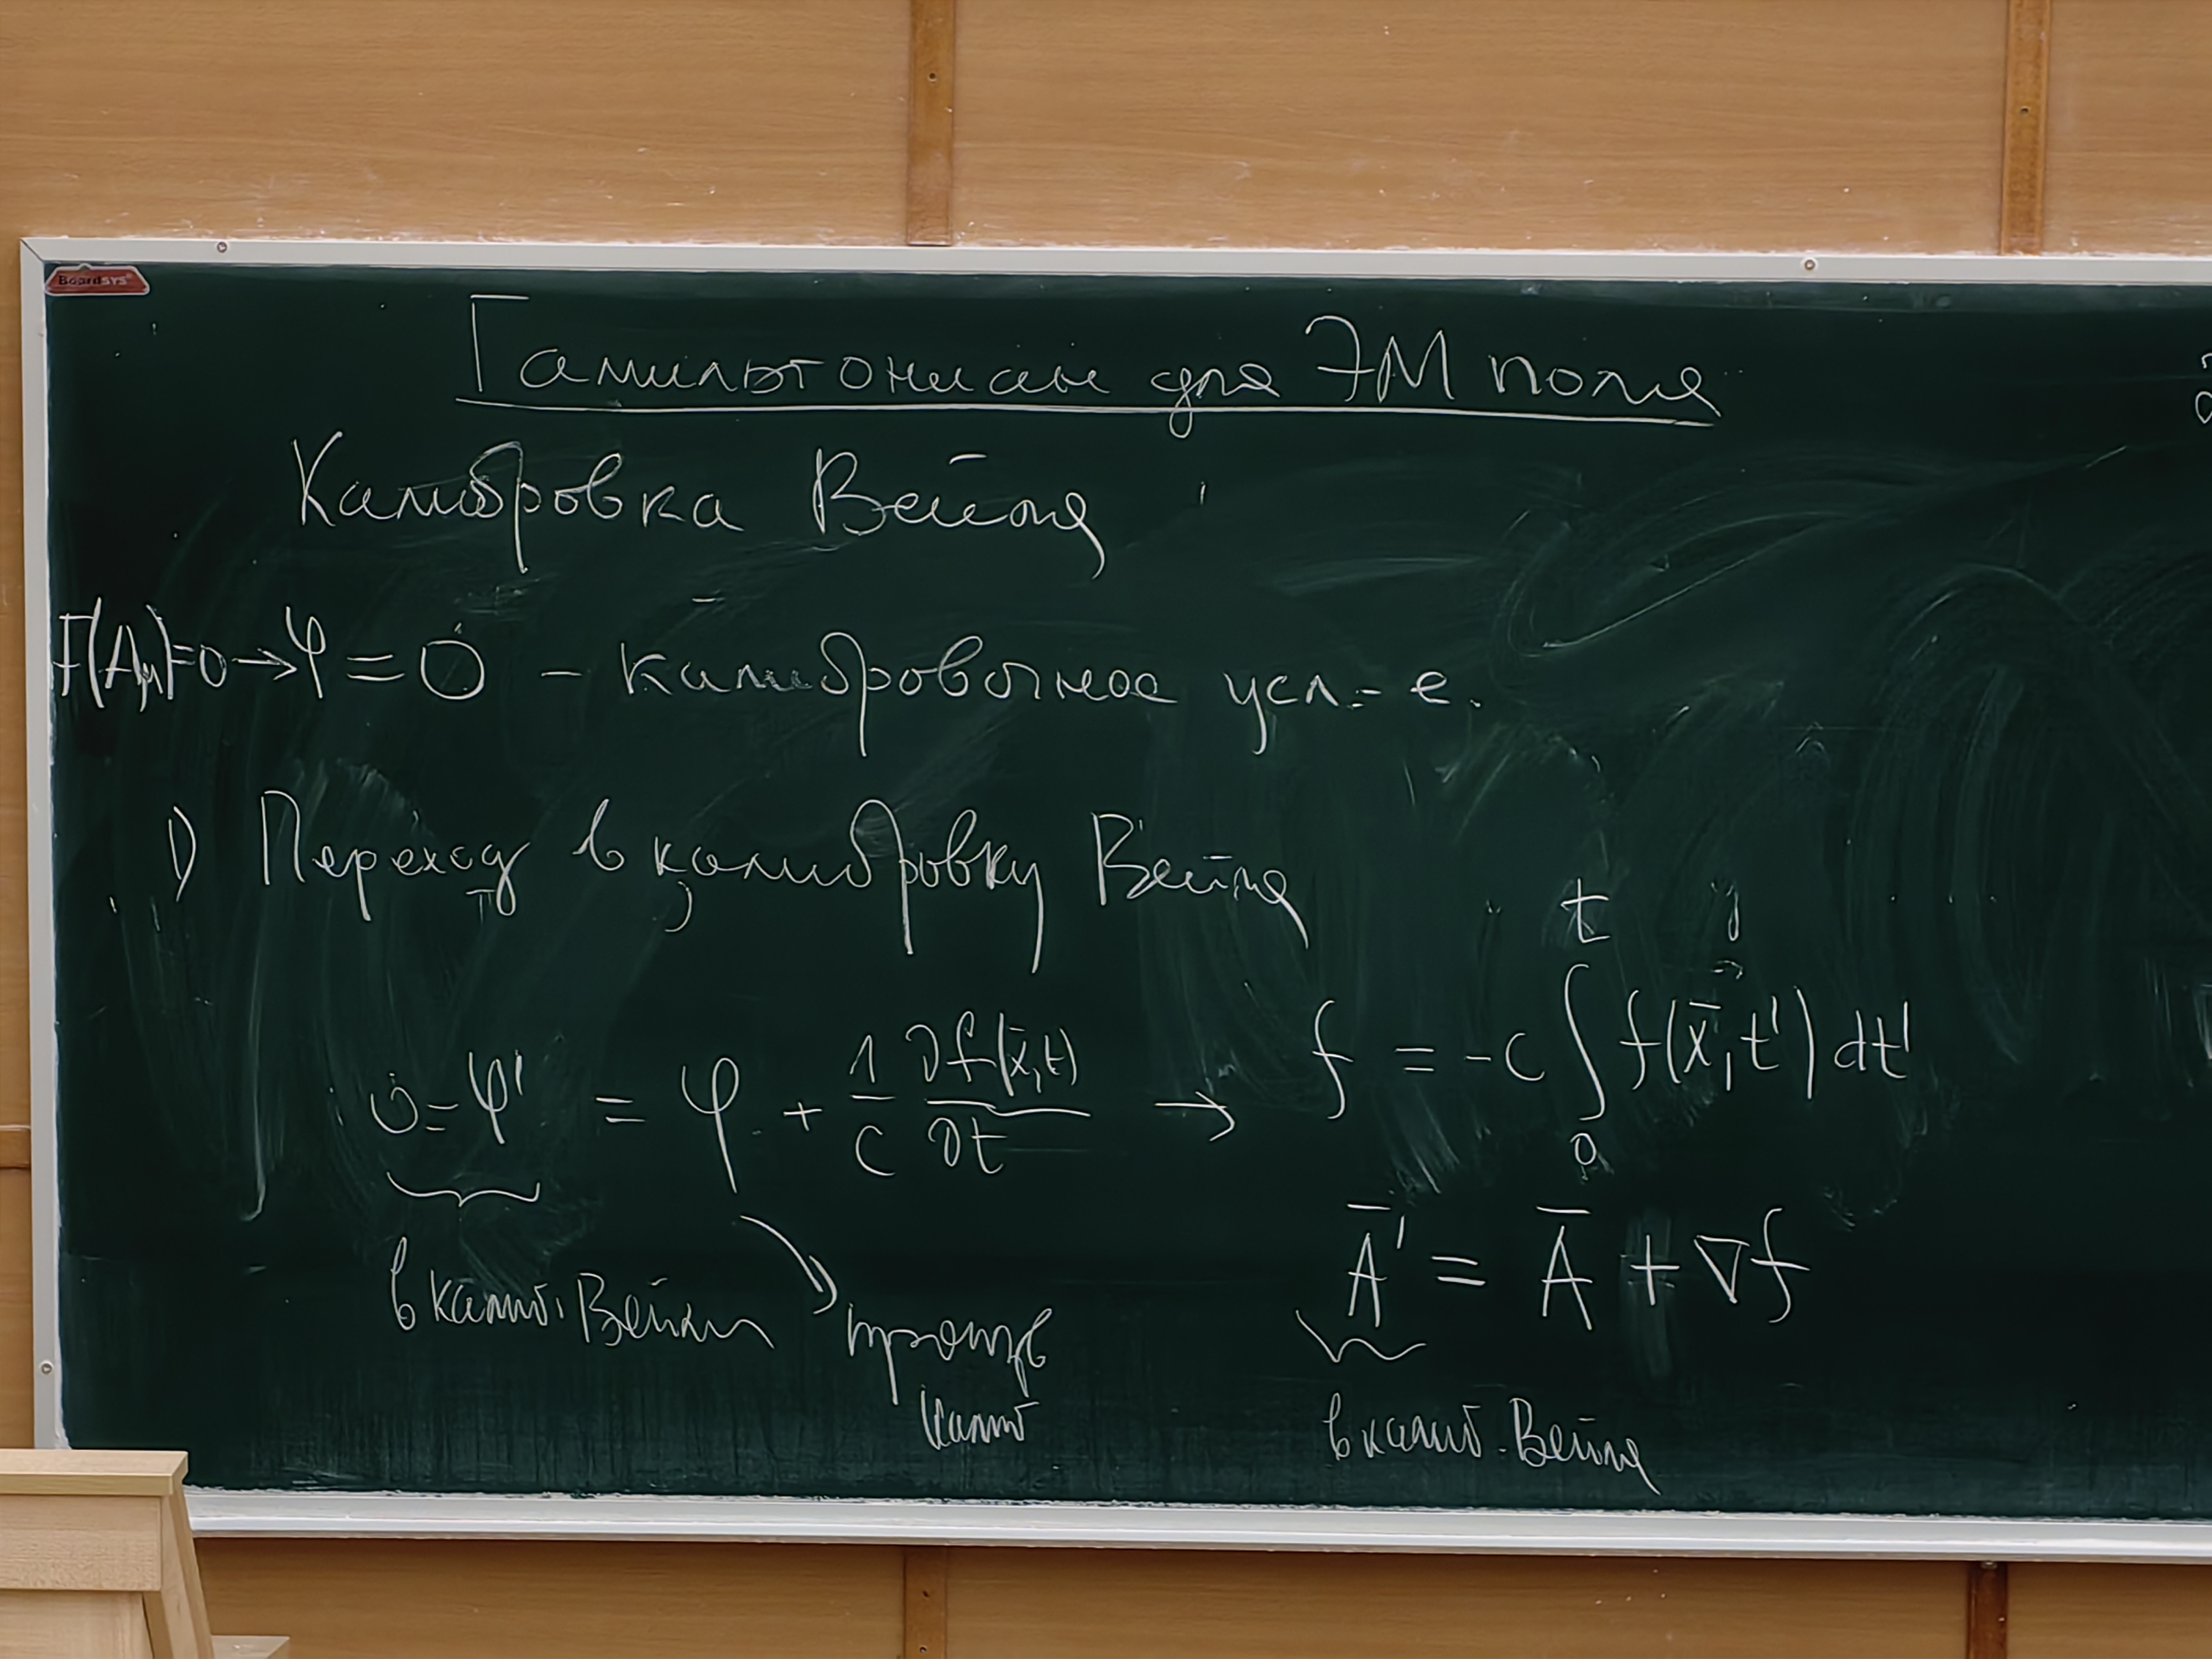 Boardsys
Гамильтониан для ЭМ поля
Калибровка Вейля
F(Aμ)=0→φ = 0 – калибровочное усл-е.
1) Переход в калибровку Вейля
0=φ' = φ + 1/c ∂f(x̄,t)/∂t → f = -c ∫₀ᵗ f(x̄,t') dt'
Ā' = Ā + ∇f
в калиб. Вейля
калиб
в калиб. Вейля